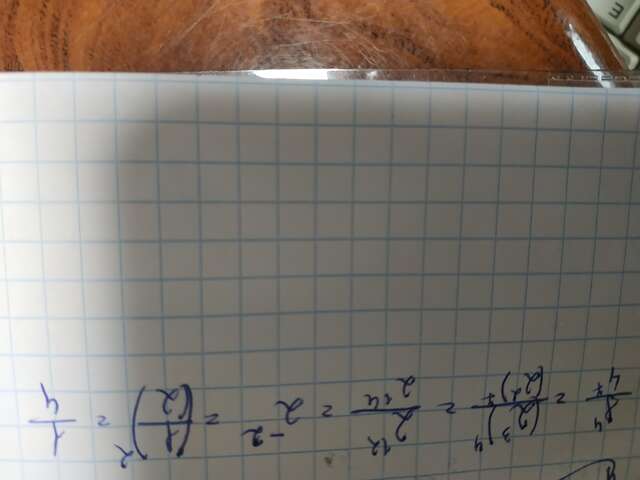 8⁴/4⁷ = (2³)⁴/(2²)⁷ = 2¹²/2¹⁴ = 2⁻² = (1/2)² = 1/4